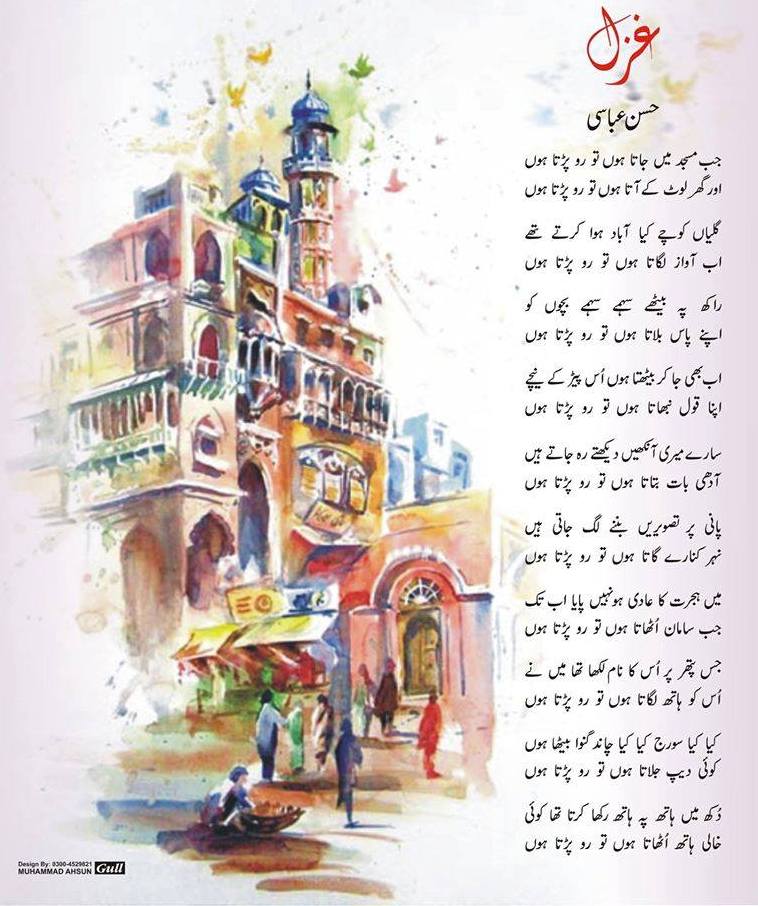 غزل
حسن عباسی
جب مسجد میں جاتا ہوں تو رو پڑتا ہوں
اور گھر لوٹ کے آتا ہوں تو رو پڑتا ہوں
گلیاں کوچے کیا آباد ہوا کرتے تھے
اب آواز لگاتا ہوں تو رو پڑتا ہوں
راکھ پہ بیٹھے سہمے سہمے بچوں کو
اپنے پاس بلاتا ہوں تو رو پڑتا ہوں
اب بھی جا کر بیٹھتا ہوں اُس پیڑ کے نیچے
اپنا قول نبھاتا ہوں تو رو پڑتا ہوں
سارے میری آنکھیں دیکھتے رہ جاتے ہیں
آدھی بات بتاتا ہوں تو رو پڑتا ہوں
پانی پر تصویریں بننے لگ جاتی ہیں
نہر کنارے گاتا ہوں تو رو پڑتا ہوں
میں ہجرت کا عادی ہو نہیں پایا اب تک
جب سامان اُٹھاتا ہوں تو رو پڑتا ہوں
جس پتھر پر اُس کا نام لکھا تھا میں نے
اُس کو ہاتھ لگاتا ہوں تو رو پڑتا ہوں
کیا کیا سورج کیا کیا چاند گنوا بیٹھا ہوں
کوئی دیپ جلاتا ہوں تو رو پڑتا ہوں
دُکھ میں ہاتھ پہ ہاتھ رکھا کرتا تھا کوئی
خالی ہاتھ اُٹھاتا ہوں تو رو پڑتا ہوں
Design By: 0300-4529821
MUHAMMAD AHSUN Gull